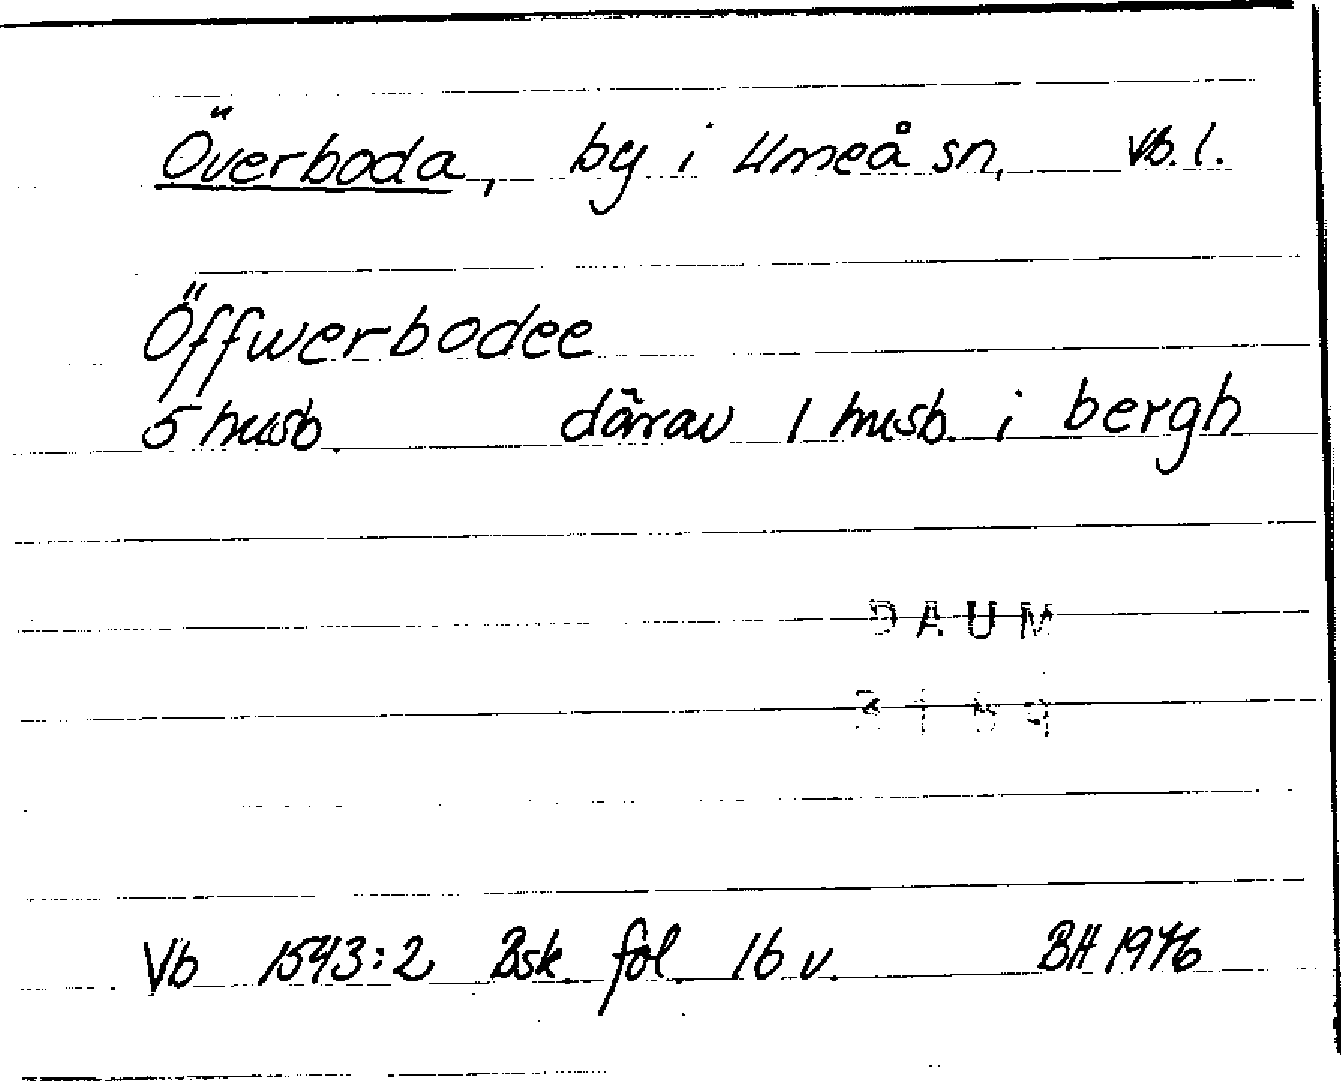 Överboda, by i Umeå sn, Vb. l.
Öffwerbodee
5 husb. därav 1 husb. i bergh
DAUM
Vb 1543:2 Bsk. fol. 16 v. BH 1976